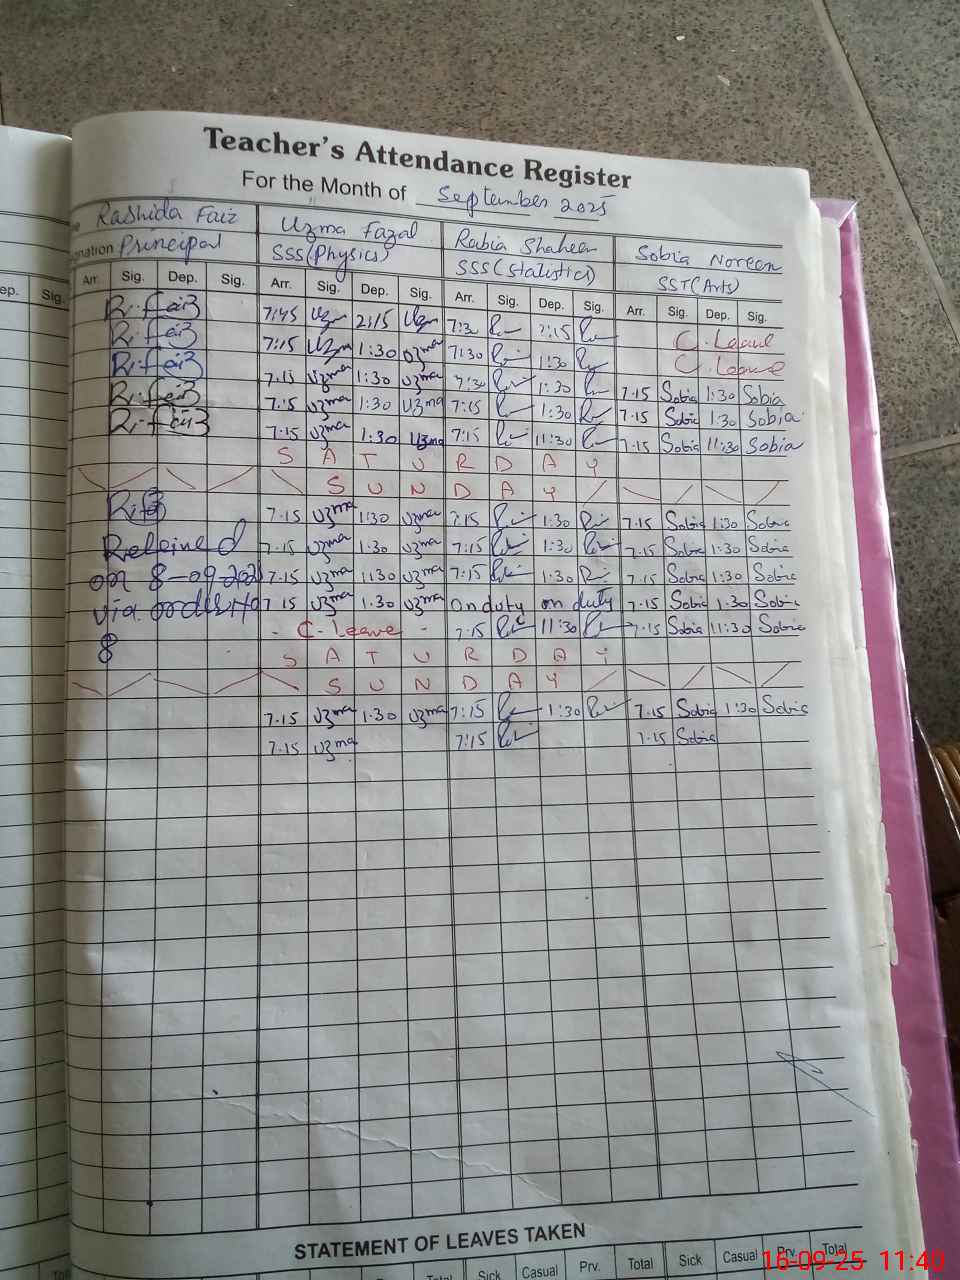 Teacher's Attendance Register
For the Month of September 2025
Rashida Faiz Uzma Fazal Rabia Shaheen Sobia Noreen
Principal SSS(Physics) SSS(Statistics) SST(Arts)
Arr. Sig. Dep. Sig. Arr. Sig. Dep. Sig. Arr. Sig. Dep. Sig. Arr. Sig. Dep. Sig.
ep. Sig.
R.faiz 7:45 Uzm 2:15 Uzm 7:30 2:15 C.Leave
R.faiz 7:15 Uzma 1:30 Uzma 7:30 1:30 C.Leave
R.faiz 7.15 Uzma 1:30 Uzma 7:30 1:30 7.15 Sobia 1:30 Sobia
R.faiz 7.15 Uzma 1:30 Uzma 7:15 1:30 7.15 Sobia 1:30 Sobia
R.faiz 7.15 Uzma 1:30 Uzma 7:15 11:30 7.15 Sobia 11:30 Sobia
S A T U R D A Y
S U N D A Y
7.15 Uzma 1:30 Uzma 7:15 1:30 7.15 Sobia 1:30 Sobia
Releived 7.15 Uzma 1:30 Uzma 7:15 1:30 7.15 Sobia 1:30 Sobia
on 8-09-202 7.15 Uzma 1:30 Uzma 7:15 1:30 7.15 Sobia 1:30 Sobia
via order No 7.15 Uzma 1.30 Uzma On duty on duty 7.15 Sobia 1.30 Sobia
8 C-Leave 7:15 11:30 7.15 Sobia 11:30 Sobia
S A T U R D A Y
S U N D A Y
7.15 Uzma 1.30 Uzma 7:15 1:30 7.15 Sobia 1:30 Sobia
7.15 Uzma 7:15 7.15 Sobia
STATEMENT OF LEAVES TAKEN
Total Sick Casual Prv. Total Sick Casual Prv. Total
16-09-25 11:40